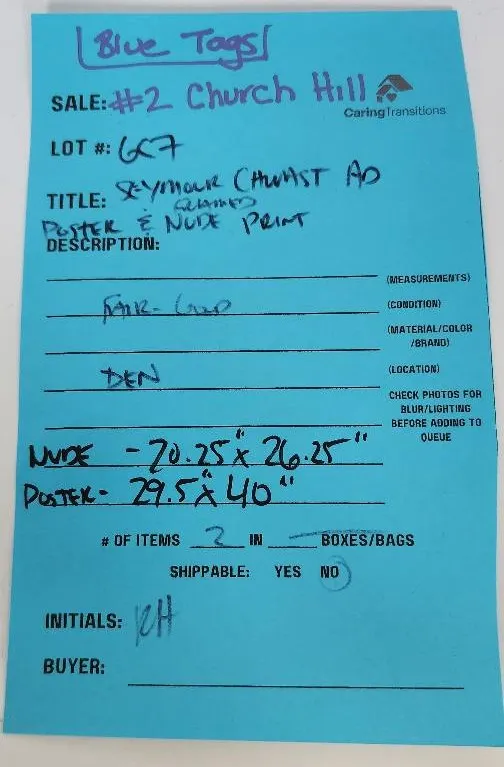 Blue Tags
SALE: #2 Church Hill
CaringTransitions
LOT #: GC7
TITLE: SEYMOUR CHWAST AD
FRAMED
POSTER & NUDE PRINT
DESCRIPTION:
(MEASUREMENTS)
FAIR-GOOD (CONDITION)
(MATERIAL/COLOR
/BRAND)
DEN (LOCATION)
CHECK PHOTOS FOR
BLUR/LIGHTING
BEFORE ADDING TO
QUEUE
NUDE - 20.25" x 26.25"
POSTER - 29.5" x 40"
# OF ITEMS 2 IN BOXES/BAGS
SHIPPABLE: YES NO
INITIALS: RH
BUYER: